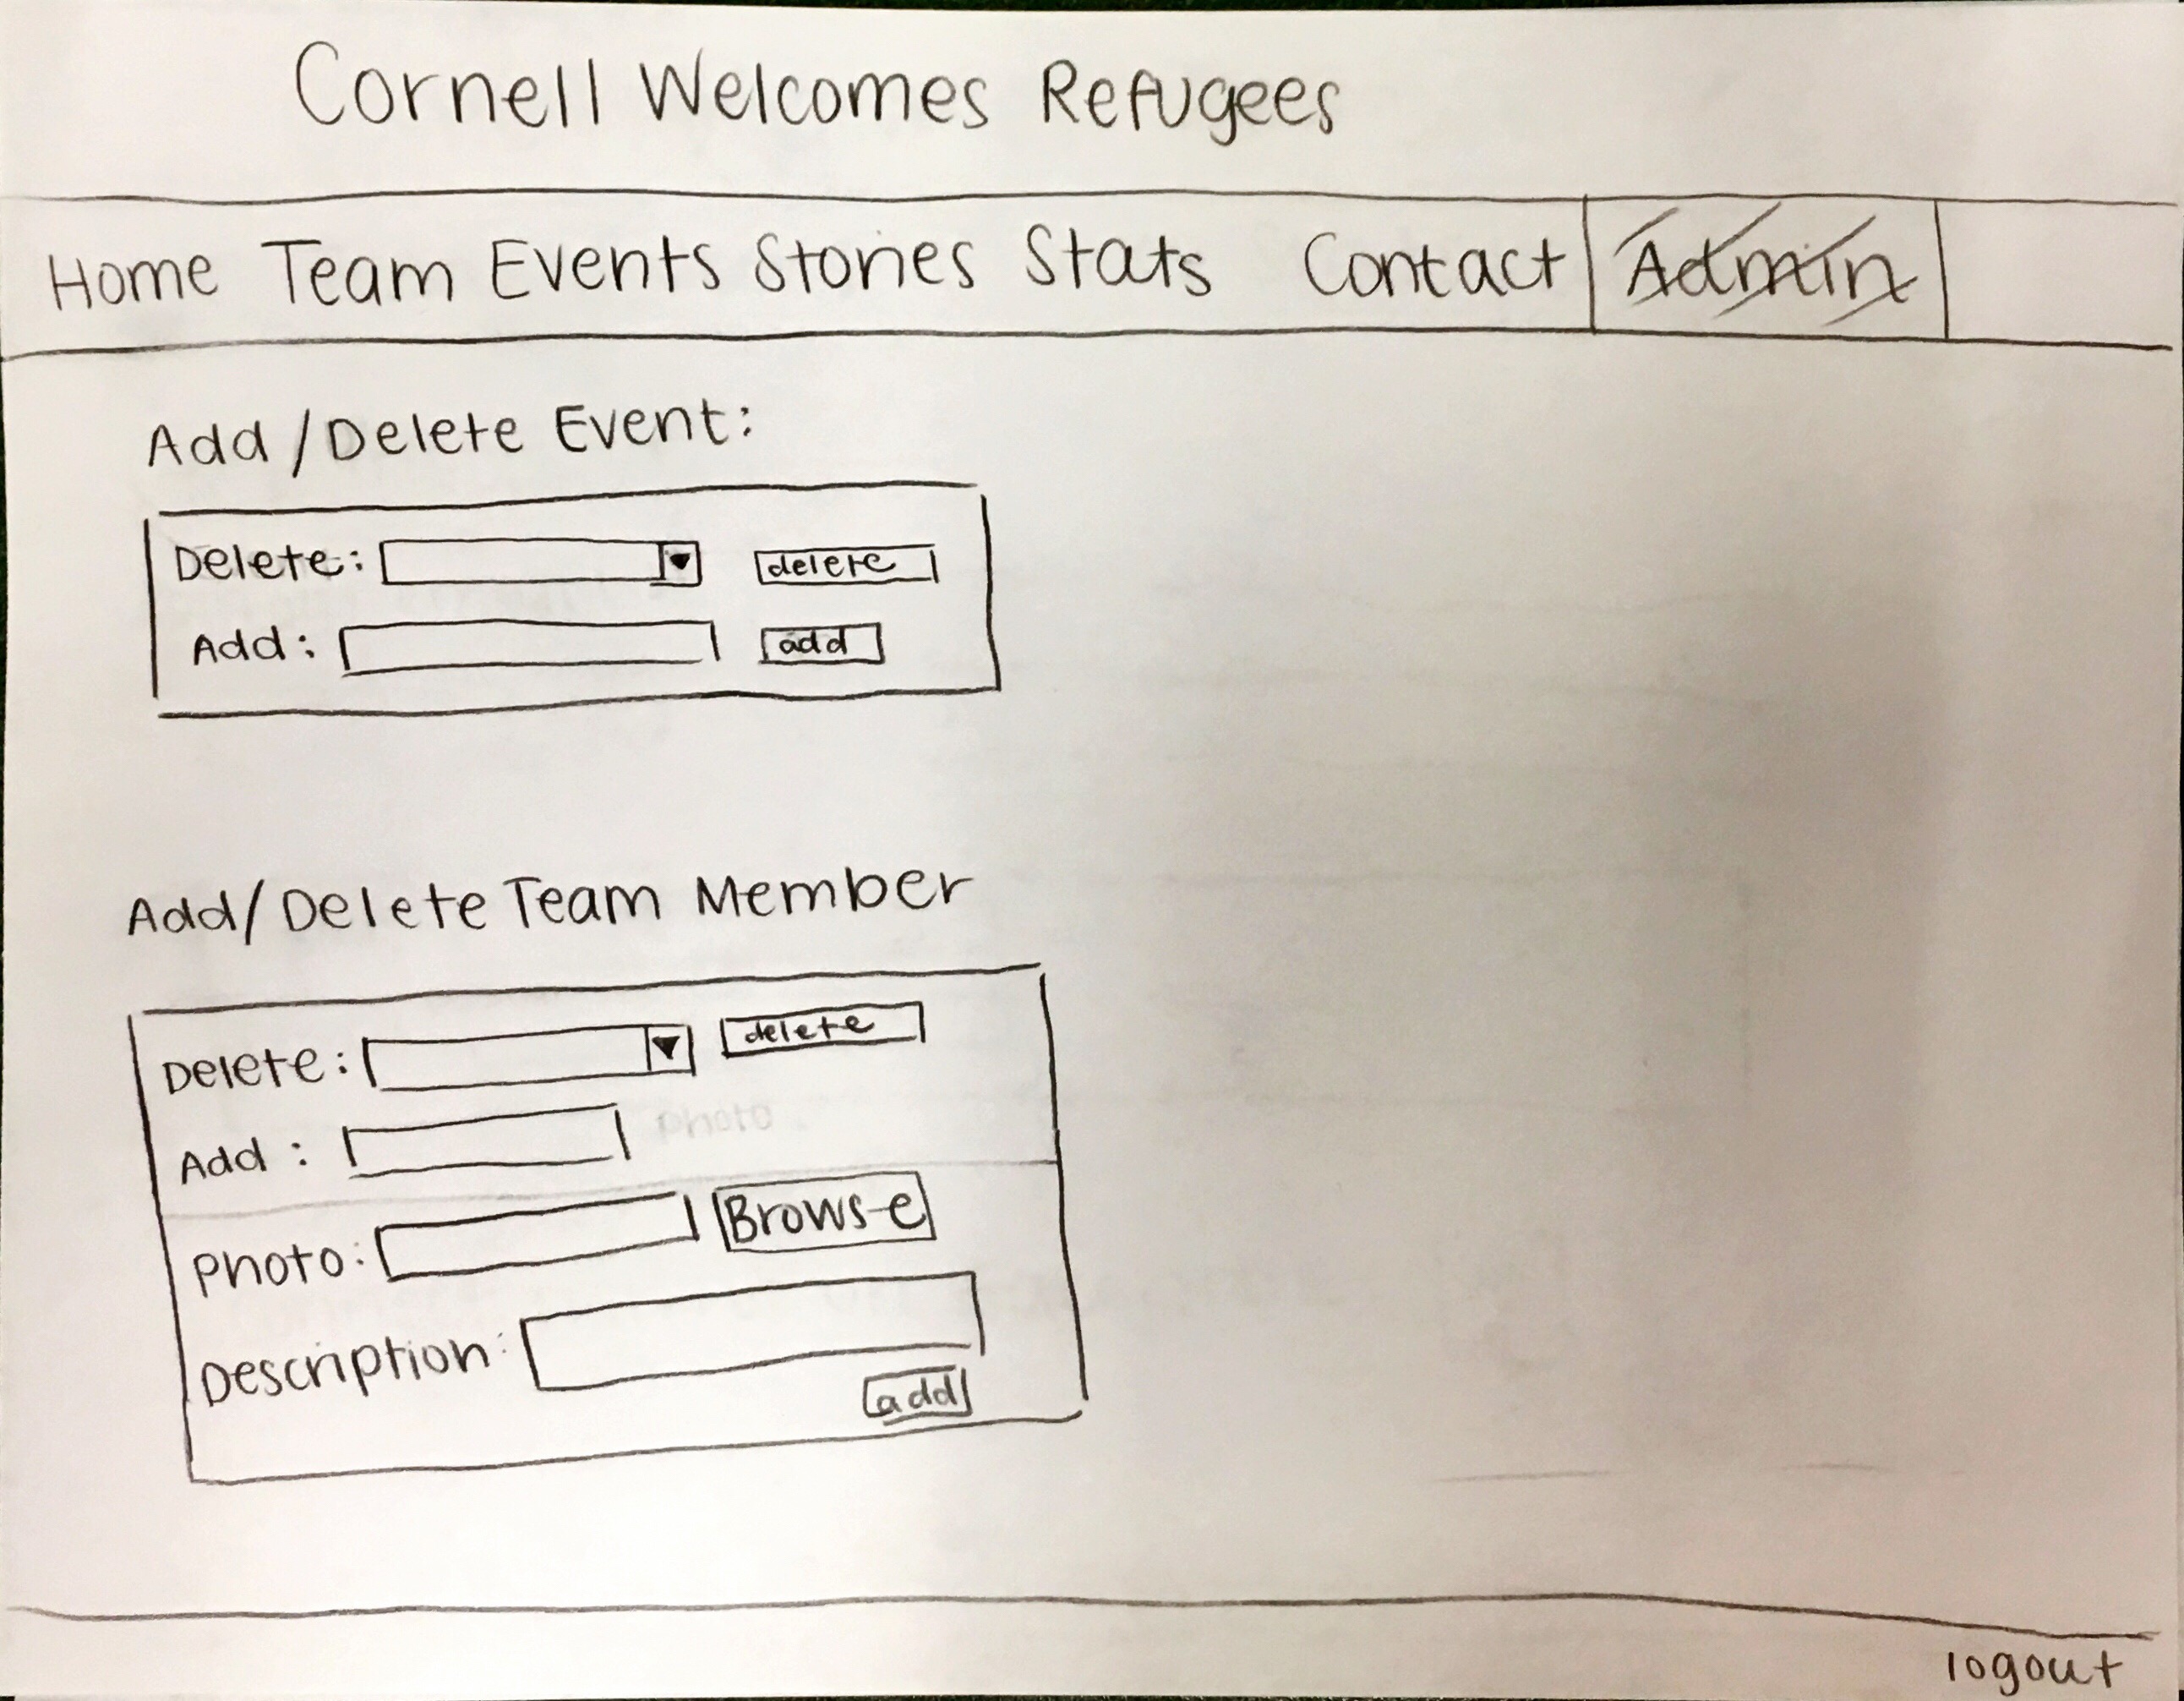 Cornell Welcomes Refugees
Home Team Events Stories Stats Contact Admin
Add/Delete Event:
Delete: delete
Add: add
Add/Delete Team Member
Delete: delete
Add:
photo
Photo: Browse
Description:
add
logout